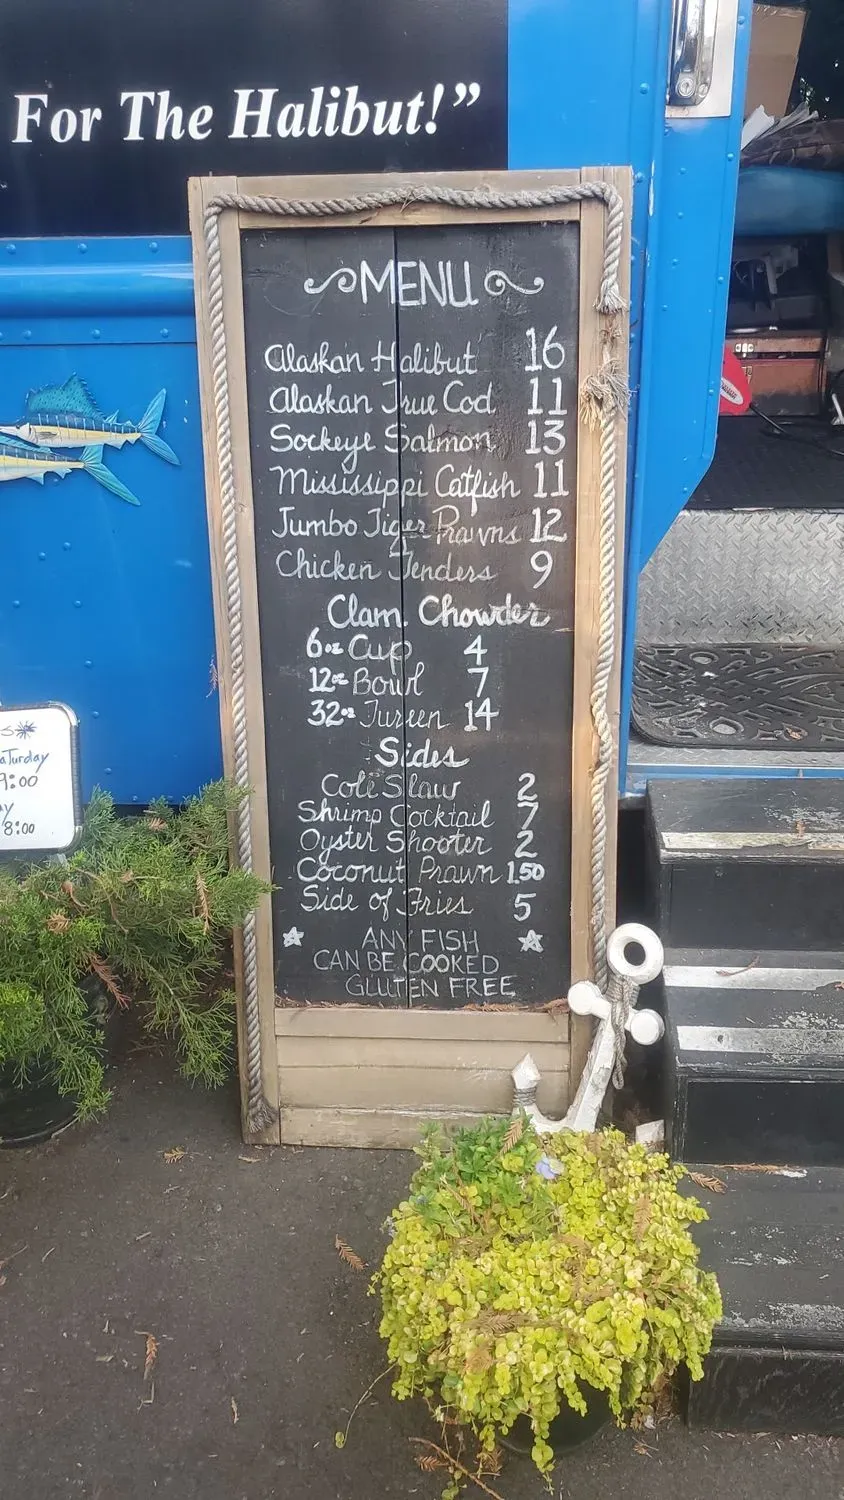 For The Halibut!”
MENU
Alaskan Halibut 16
Alaskan True Cod 11
Sockeye Salmon 13
Mississippi Catfish 11
Jumbo Tiger Prawns 12
Chicken Tenders 9
Clam Chowder
6oz Cup 4
12oz Bowl 7
32oz Tureen 14
Sides
Cole Slaw 2
Shrimp Cocktail 7
Oyster Shooter 2
Coconut Prawn 1.50
Side of Fries 5
ANY FISH
CAN BE COOKED
GLUTEN FREE
aTurday
9:00
8:00